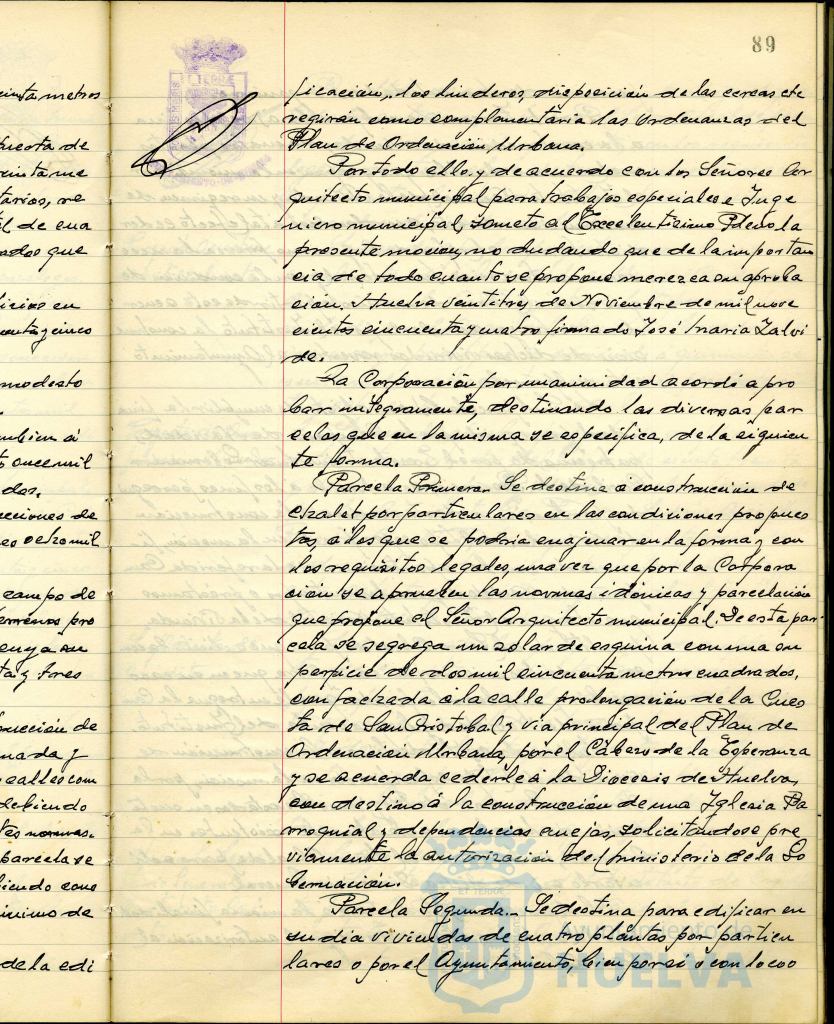 89
ficación, los linderos, disposición de las cercas etc
regirán como complementaria las ordenanzas del
Plan de Ordenación Urbana.
Por todo ello, y de acuerdo con los Señores Ar
quitecto municipal para trabajos especiales e Inge
niero municipal, someto al Excelentísimo Pleno la
presente moción, no dudando que de la importan
cia de todo cuanto se propone merezca su aproba
ción. Huelva veintitres de Noviembre de mil nove
cientos cincuenta y cuatro firmado José Maria Zalvi
de.
La Corporación por unanimidad acordó apro
bar integramente, destinando las diversas par
celas que en la misma se especifica, de la siguien
te forma.
Parcela Primera. Se destina á construcción de
chalet por particulares en las condiciones propues
tas, á los que se podria enajenar en la forma y con
los requisitos legales, una vez que por la Corpora
ción se aprueben las normas idónicas y parcelación
que propone el Señor Arquitecto municipal. De esta par
cela se segrega un solar de esquina con una su
perficie de dos mil cincuenta metros cuadrados,
con fachada á la calle prolongación de la Cues
ta de San Cristobal y via principal del Plan de
Ordenación Urbana, por el Cabezo de la Esperanza
y se acuerda cederle á la Diocesis de Huelva,
con destino á la construcción de una Iglesia Pa
rroquial y dependencias anejas, solicitándose pre
viamente la autorización del Ministerio de la Go
bernación.
Parcela Segunda._ Se destina para edificar en
su dia viviendas de cuatro plantas por particu
lares o por el Ayuntamiento, bien por si o con la coo
Ayuntamiento de
HUELVA